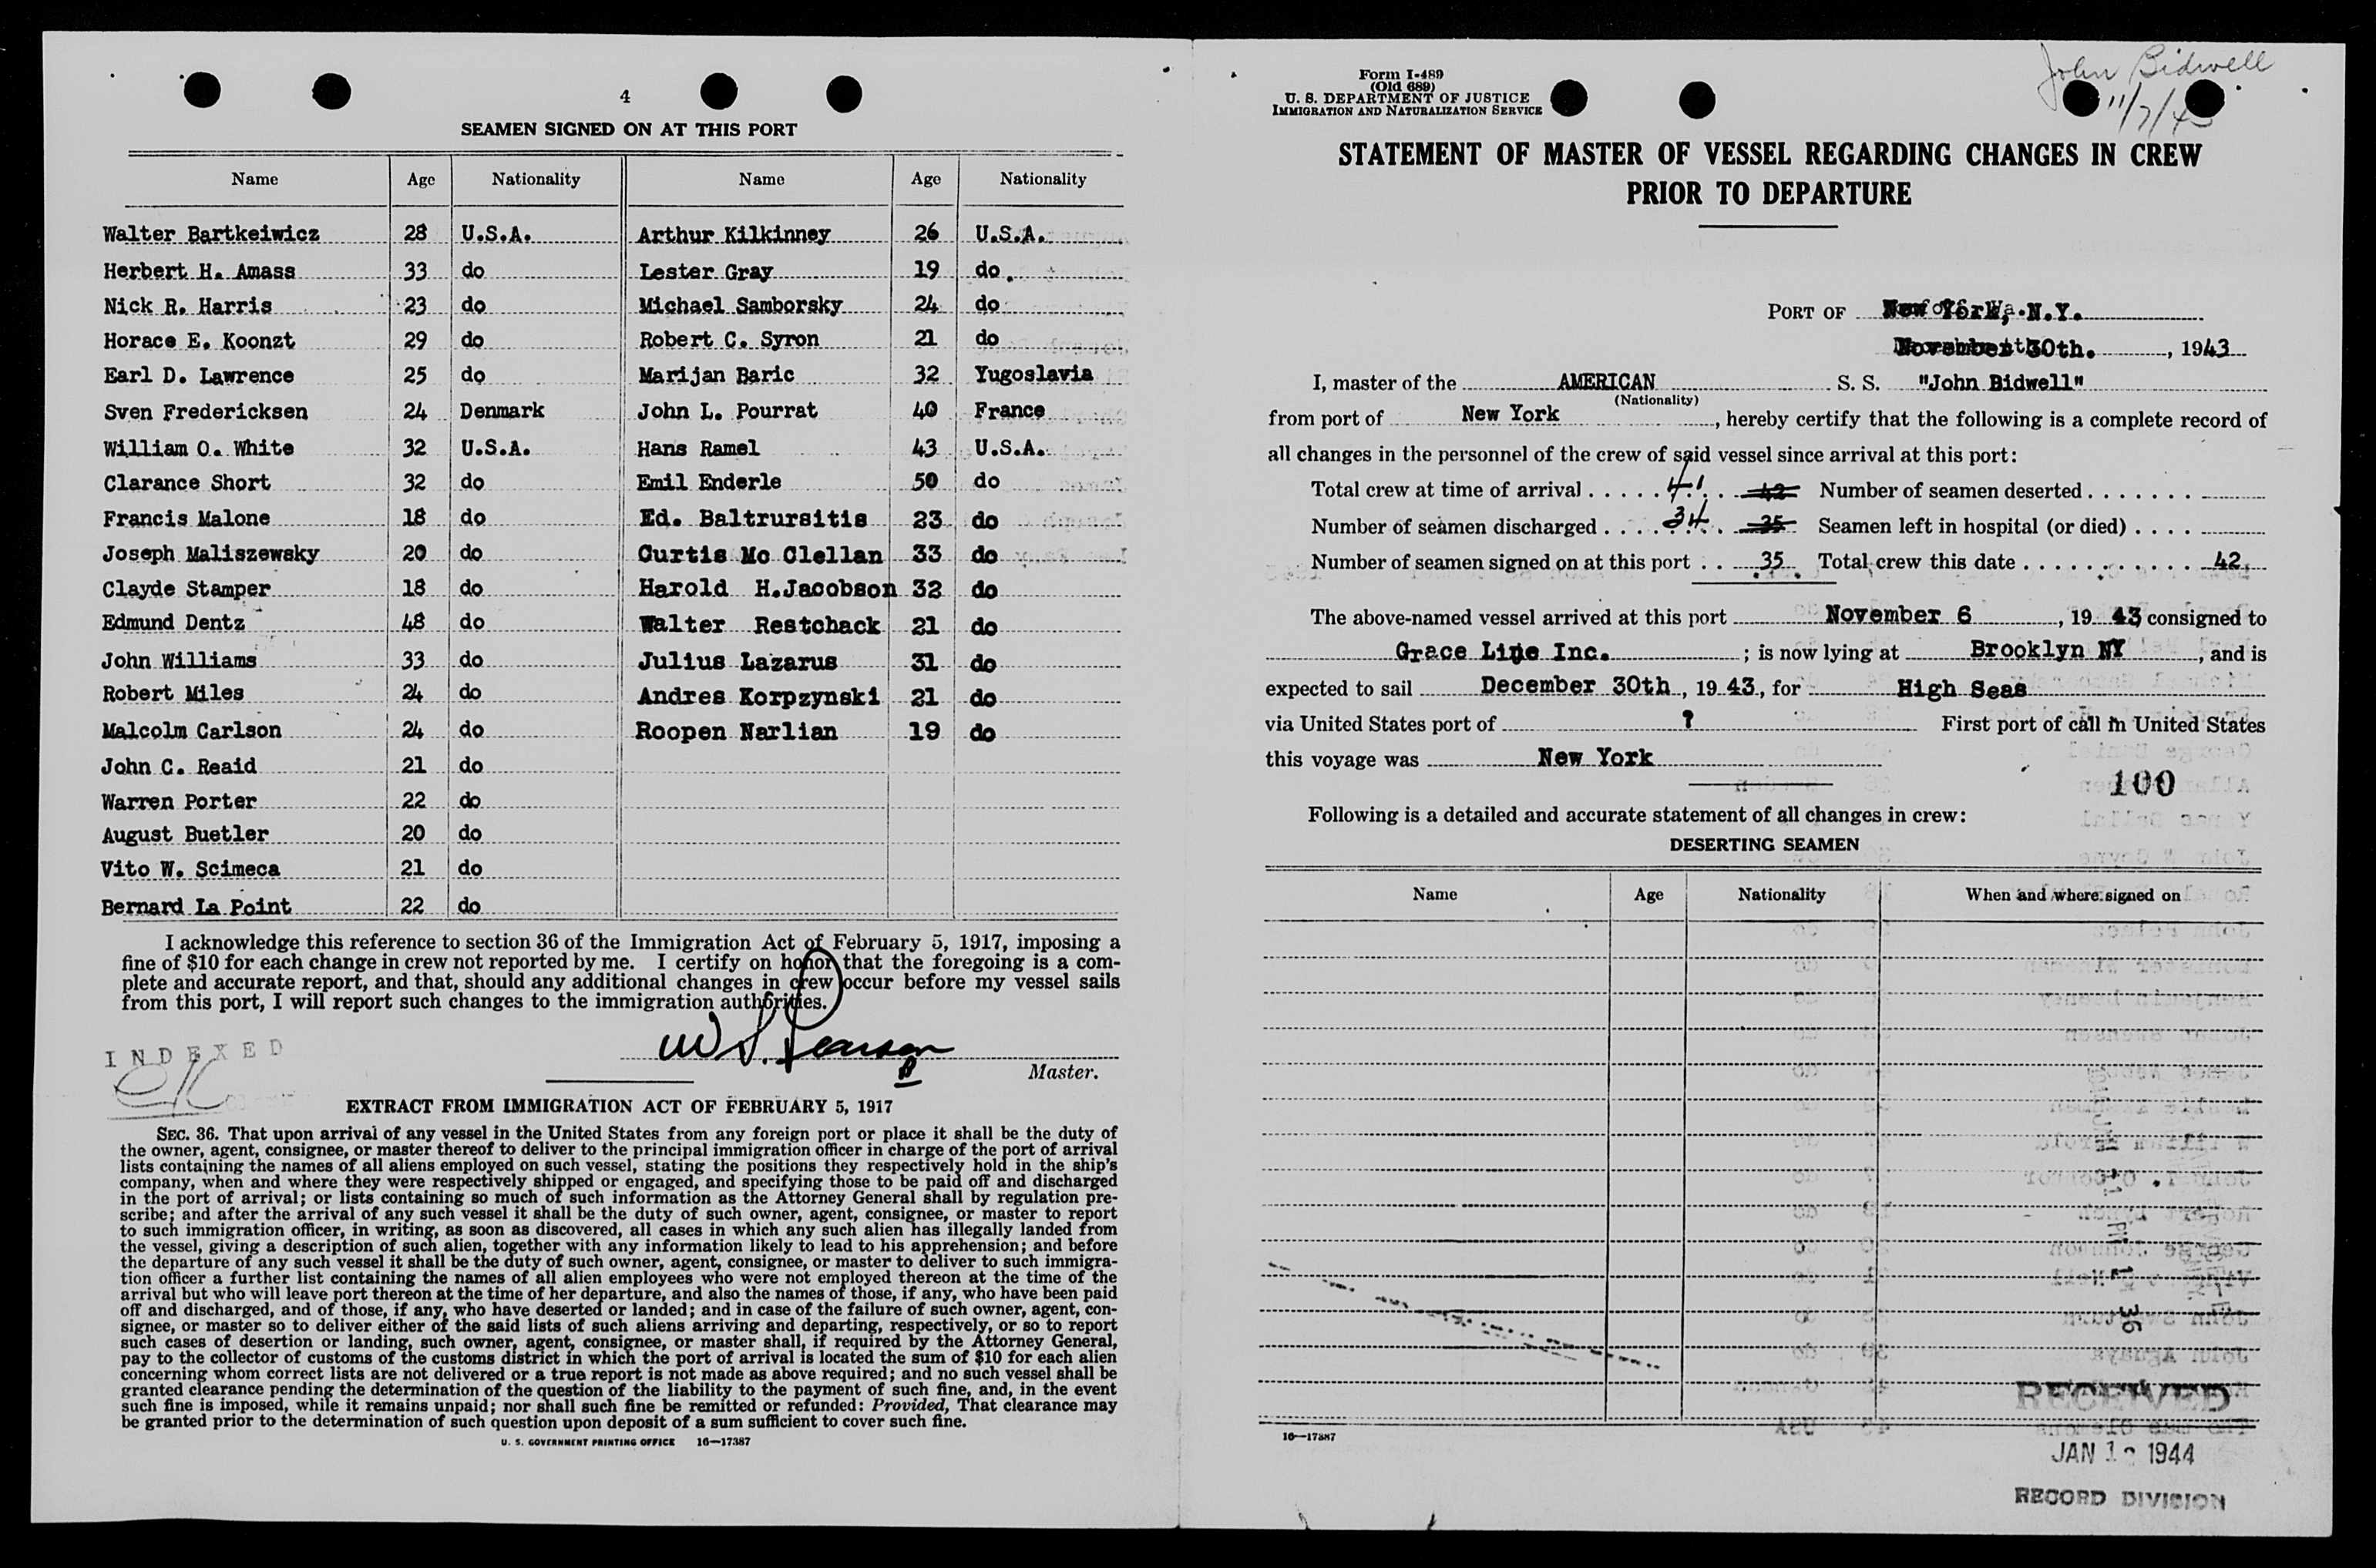 4
SEAMEN SIGNED ON AT THIS PORT
Name Age Nationality Name Age Nationality
Walter Bartkeiwicz 28 U.S.A. Arthur Kilkinney 26 U.S.A.
Herbert H. Amass 33 do Lester Gray 19 do.
Nick R. Harris 23 do Michael Samborsky 24 do
Horace E. Koonzt 29 do Robert C. Syron 21 do
Earl D. Lawrence 25 do Marijan Baric 32 Yugoslavia
Sven Fredericksen 24 Denmark John L. Pourrat 40 France
William O. White 32 U.S.A. Hans Ramel 43 U.S.A.
Clarance Short 32 do Emil Enderle 50 do
Francis Malone 18 do Ed. Baltrursitis 23 do
Joseph Maliszewsky 20 do Curtis Mc Clellan 33 do
Clayde Stamper 18 do Harold H.Jacobson 32 do
Edmund Dentz 48 do Walter Restchack 21 do
John Williams 33 do Julius Lazarus 31 do
Robert Miles 24 do Andres Korpzynski 21 do
Malcolm Carlson 24 do Roopen Narlian 19 do
John C. Reaid 21 do
Warren Porter 22 do
August Buetler 20 do
Vito W. Scimeca 21 do
Bernard La Point 22 do
I acknowledge this reference to section 36 of the Immigration Act of February 5, 1917, imposing a
fine of $10 for each change in crew not reported by me. I certify on honor that the foregoing is a com-
plete and accurate report, and that, should any additional changes in crew occur before my vessel sails
from this port, I will report such changes to the immigration authorities.
INDEXED
OK
W S. Pearson
Master.
EXTRACT FROM IMMIGRATION ACT OF FEBRUARY 5, 1917
SEC. 36. That upon arrival of any vessel in the United States from any foreign port or place it shall be the duty of
the owner, agent, consignee, or master thereof to deliver to the principal immigration officer in charge of the port of arrival
lists containing the names of all aliens employed on such vessel, stating the positions they respectively hold in the ship's
company, when and where they were respectively shipped or engaged, and specifying those to be paid off and discharged
in the port of arrival; or lists containing so much of such information as the Attorney General shall by regulation pre-
scribe; and after the arrival of any such vessel it shall be the duty of such owner, agent, consignee, or master to report
to such immigration officer, in writing, as soon as discovered, all cases in which any such alien has illegally landed from
the vessel, giving a description of such alien, together with any information likely to lead to his apprehension; and before
the departure of any such vessel it shall be the duty of such owner, agent, consignee, or master to deliver to such immigra-
tion officer a further list containing the names of all alien employees who were not employed thereon at the time of the
arrival but who will leave port thereon at the time of her departure, and also the names of those, if any, who have been paid
off and discharged, and of those, if any, who have deserted or landed; and in case of the failure of such owner, agent, con-
signee, or master so to deliver either of the said lists of such aliens arriving and departing, respectively, or so to report
such cases of desertion or landing, such owner, agent, consignee, or master shall, if required by the Attorney General,
pay to the collector of customs of the customs district in which the port of arrival is located the sum of $10 for each alien
concerning whom correct lists are not delivered or a true report is not made as above required; and no such vessel shall be
granted clearance pending the determination of the question of the liability to the payment of such fine, and, in the event
such fine is imposed, while it remains unpaid; nor shall such fine be remitted or refunded: Provided, That clearance may
be granted prior to the determination of such question upon deposit of a sum sufficient to cover such fine.
U. S. GOVERNMENT PRINTING OFFICE 16—17387
John Bidwell
11/7/43
Form I-489
(Old 689)
U. S. DEPARTMENT OF JUSTICE
IMMIGRATION AND NATURALIZATION SERVICE
STATEMENT OF MASTER OF VESSEL REGARDING CHANGES IN CREW
PRIOR TO DEPARTURE
PORT OF New York, N.Y.
November 30th., 1943
I, master of the AMERICAN S. S. "John Bidwell"
(Nationality)
from port of New York, hereby certify that the following is a complete record of
all changes in the personnel of the crew of said vessel since arrival at this port:
Total crew at time of arrival 41 42 Number of seamen deserted
Number of seamen discharged 34 35 Seamen left in hospital (or died)
Number of seamen signed on at this port 35 Total crew this date 42
The above-named vessel arrived at this port November 6, 1943 consigned to
Grace Line Inc.; is now lying at Brooklyn NY, and is
expected to sail December 30th, 1943, for High Seas
via United States port of ? First port of call in United States
this voyage was New York
100
Following is a detailed and accurate statement of all changes in crew:
DESERTING SEAMEN
Name Age Nationality When and where signed on
16—17387
RECEIVED
JAN 1 1944
RECORD DIVISION